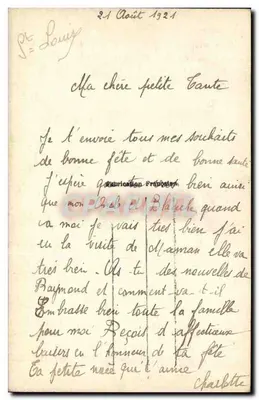 21 Août 1921
St Louis
Ma chère petite Tante
Je t'envoie tous mes souhaits
de bonne fête et de bonne santé
J'espère que bien ainsi
Fabrication Française
que mon quand
va moi je vais très bien j'ai
eu la visite de Maman elle va
très bien. As tu des nouvelles de
Raymond et comment va-t-il
Embrasse bien toute la famille
pour moi Reçois d'affectueux
baisers en l'honneur de ta fête
Ta petite nièce qui t'aime
Charlotte